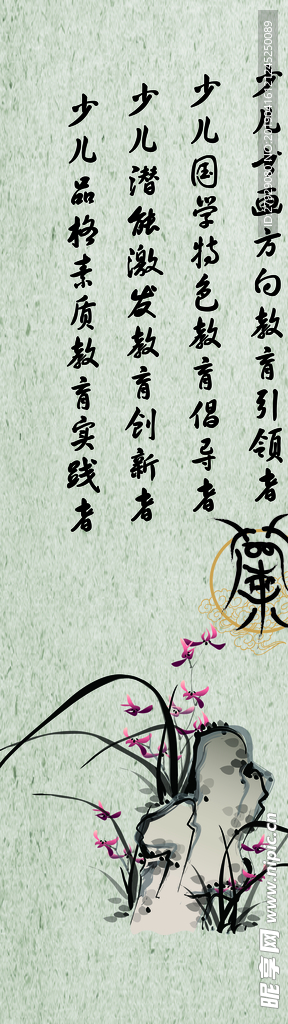 少儿书画方向教育引领者
少儿国学特色教育倡导者
少儿潜能激发教育创新者
少儿品格素质教育实践者
昵享网 www.nipic.cn